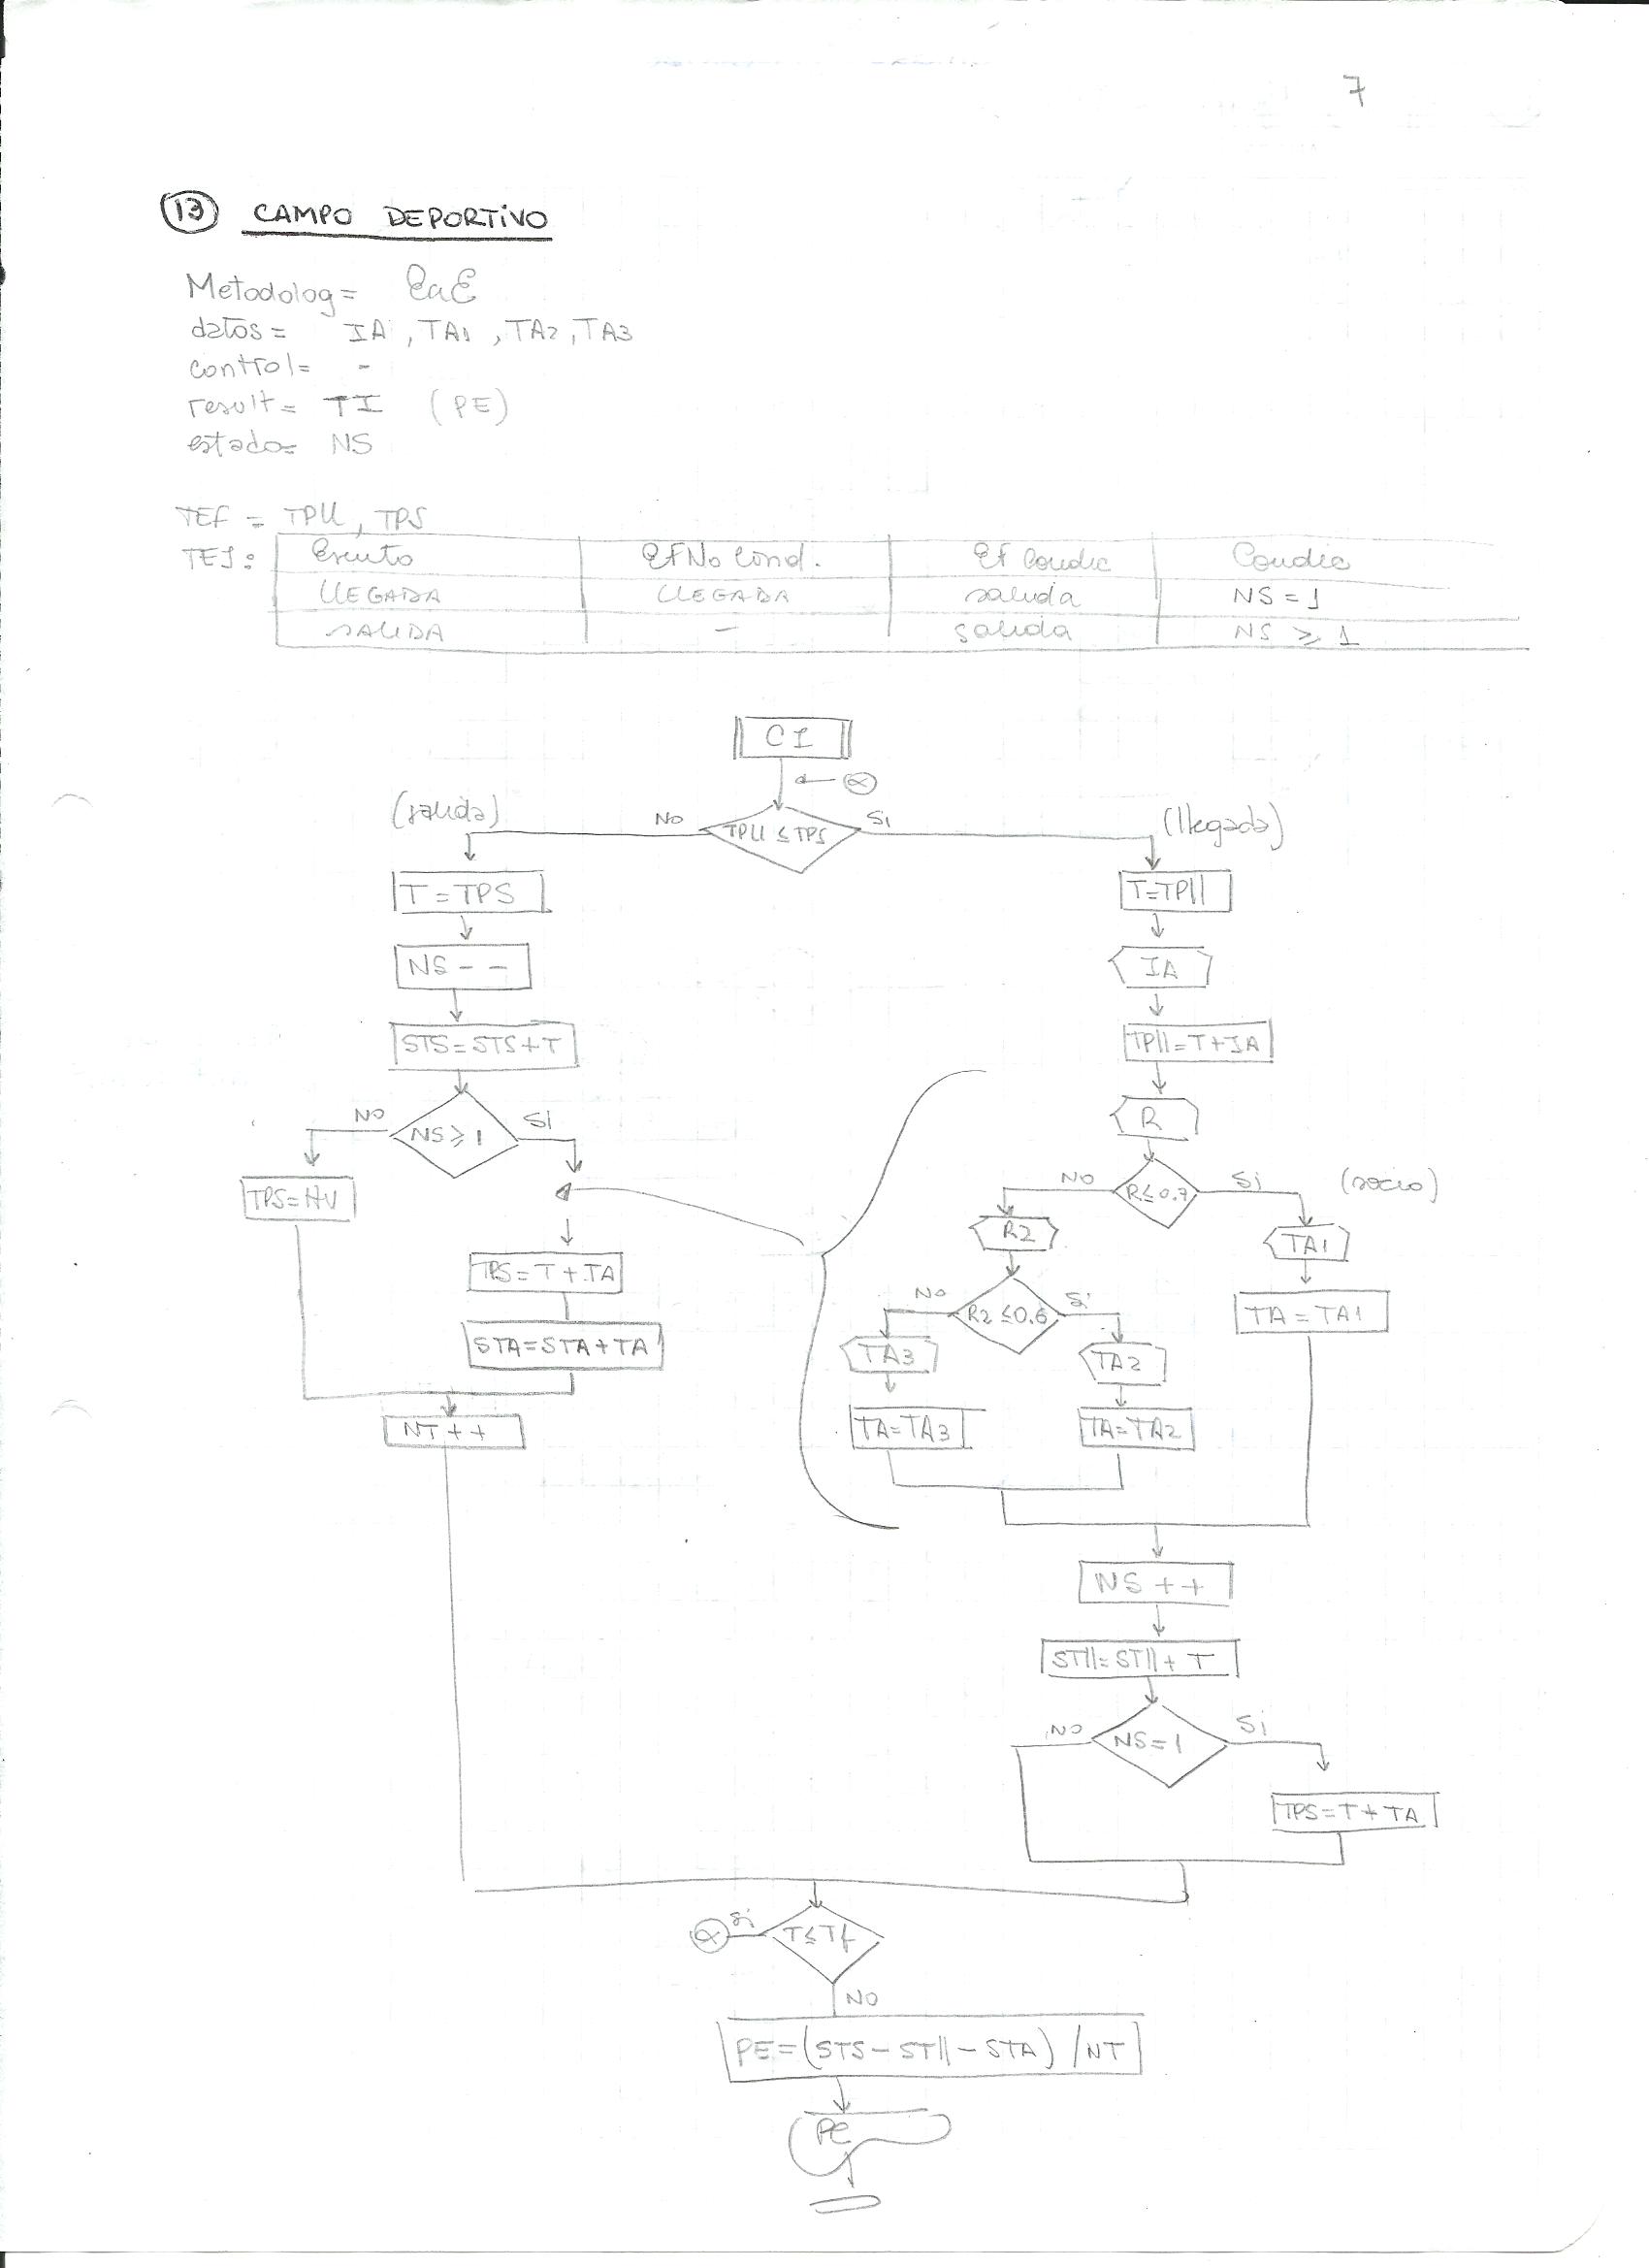 7
13 CAMPO DEPORTIVO
Metodolog = EaE
datos = IA, TA1, TA2, TA3
control = -
result = TI (PE)
estado = NS
TEF = TPLL, TPS
TEI: Evento Ef No Cond. Ef Condic Condic
LLEGADA LLEGADA salida NS = 1
SALIDA - salida NS ≥ 1
CI
α
(salida) NO TPLL ≤ TPS Si (llegada)
T = TPS T=TPll
NS - - IA
STS = STS + T TPll = T + IA
NO NS ≥ 1 SI R
TPS = HV NO R≤0.7 Si (socio)
R2 TA1
TPS = T + TA NO R2 ≤ 0.6 Si TA = TA1
STA = STA + TA TA3 TA2
NT + + TA = TA3 TA = TA2
NS + +
STll = STll + T
NO NS = 1 Si
TPS = T + TA
α Si T ≤ Tf
NO
PE = (STS - STll - STA) / NT
PE